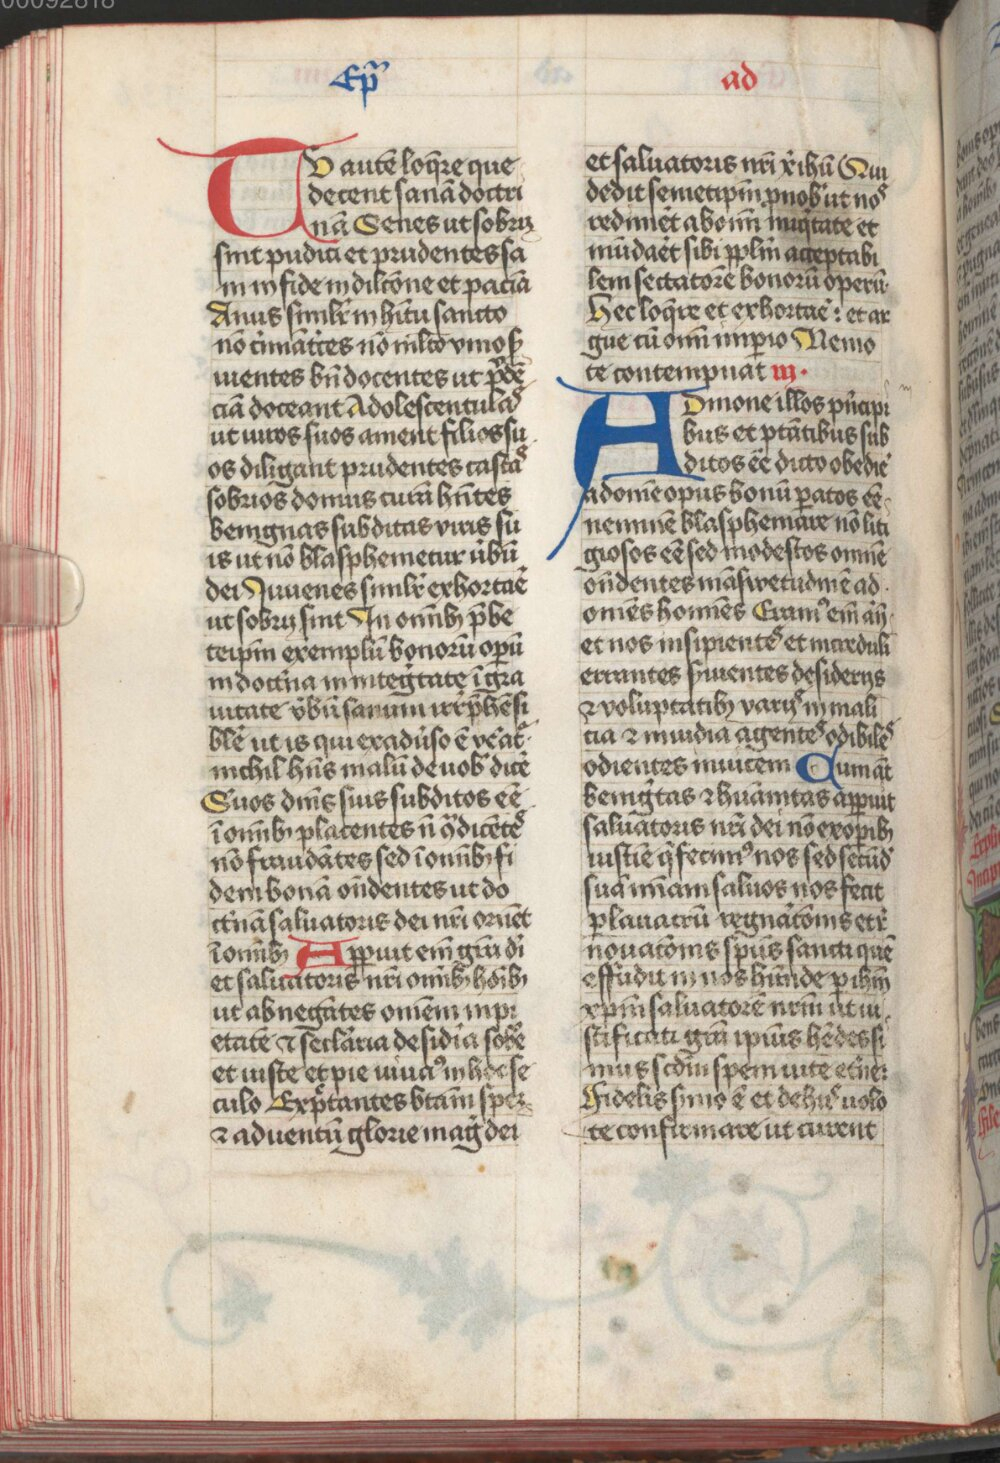 00092818
Ep̄
ad
TV autē loq̄re que
decent sanā doctri
nā Senes ut sobrij
sint pudici et prudentes sa
ni in fide in dilc̄one et paciā
Anus similr̄ in hītu sancto
nō crimātres nō mlto vino s̄
uientes bn̄ docentes ut p̄dē
ciā doceant Adolescentulas
ut uiros suos ament filios su
os diligant prudentes castas
sobrios domus curā hn̄tes
benignas subditas viris su
is ut nō blasphemetur ūbū
dei Iuuenes similr̄ exhortaē
ut sobrij sint In omīb; p̄be
teipm̄ exemplū bonorū opū
in doct'na in integ'tate ī gra
uitate v̄bū sanum irrp̄hēsi
blē ut is qui exadūso ē vēat᷑
nichil hn̄s malū de uob' dic̄e
Suos dn̄is suis subditos eē
ī omīb; placentes n̄ q̄dicētes
nō fraudātes sed ī omīb; fi
dem bonā on̄dentes ut do
ct'nā saluatoris dei nr̄i ornēt
ī omīb; Apparuit em̄ gr̄a di
et saluatoris nr̄i omīb; hōib;
ut abnegātes omēm inpi
etatē ⁊ sec̄laria desid'ia sobē
et iuste et pie uiuam᷒ in hoc se
culo Exp̄tantes btām spem
⁊ aduentū glorie mag' dei
et saluatoris nr̄i x̄i ih̄u Qui
dedit semetipm̄ p nob' ut nos
redim̄et ab om̄i iniq'tate et
mūdaēt sibi pplm̄ acceptabi
lem sectatorē bonorū operū
Hec loq̄re et exhortaē : et ar
gue cū om̄i imperio Nemo
te contempnat iij .
ADmone illos p'ncipi
bus et ptātibus sub
ditos eē dicto obedie'
ad om̄e opus bonū patos eē
neminē blasphemare nō liti
giosos eē sed modestos omnē
on̄dentes māswetudinē ad
om̄es homines Eram᷒ em̄ aln̄
et nos insipientes et increduli
errantes s̄uientes desiderijs
⁊ voluptatib; varijs in mali
cia ⁊ inuidia agentes odibiles
odientes inuicem Cum aūt
benig'tas ⁊ hūanitas apparuit
saluatoris nr̄i dei nō ex opib;
iustiē q̄ fecim᷒ nos sed secūd'
suā mīam saluos nos fecit
p lauacrū regnāc̄onis et r̄
nouac̄onis sp̄us sancti quē
effudit in nos hūnde p ih̄m
xp̄m saluatorē nr̄m ut iu
stificati gr̄a ipius hēdes si
mus scdm̄ spem uite et'ne :
Fidelis s̄mo ē et de hijs uolo
te confirmare ut curent